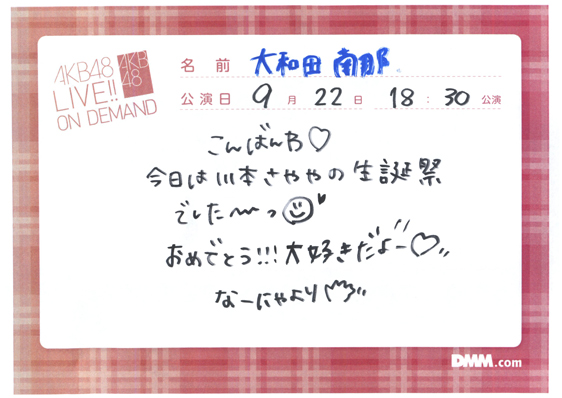 AKB48
LIVE!!
ON DEMAND
AKB
48
名前 大和田 南那
公演日 9月22日 18:30公演
こんばんわ♡
今日は川本さややの生誕祭
でした〜っ
おめでとう!!!大好きだよー♡
なーにゃより
DMM.com